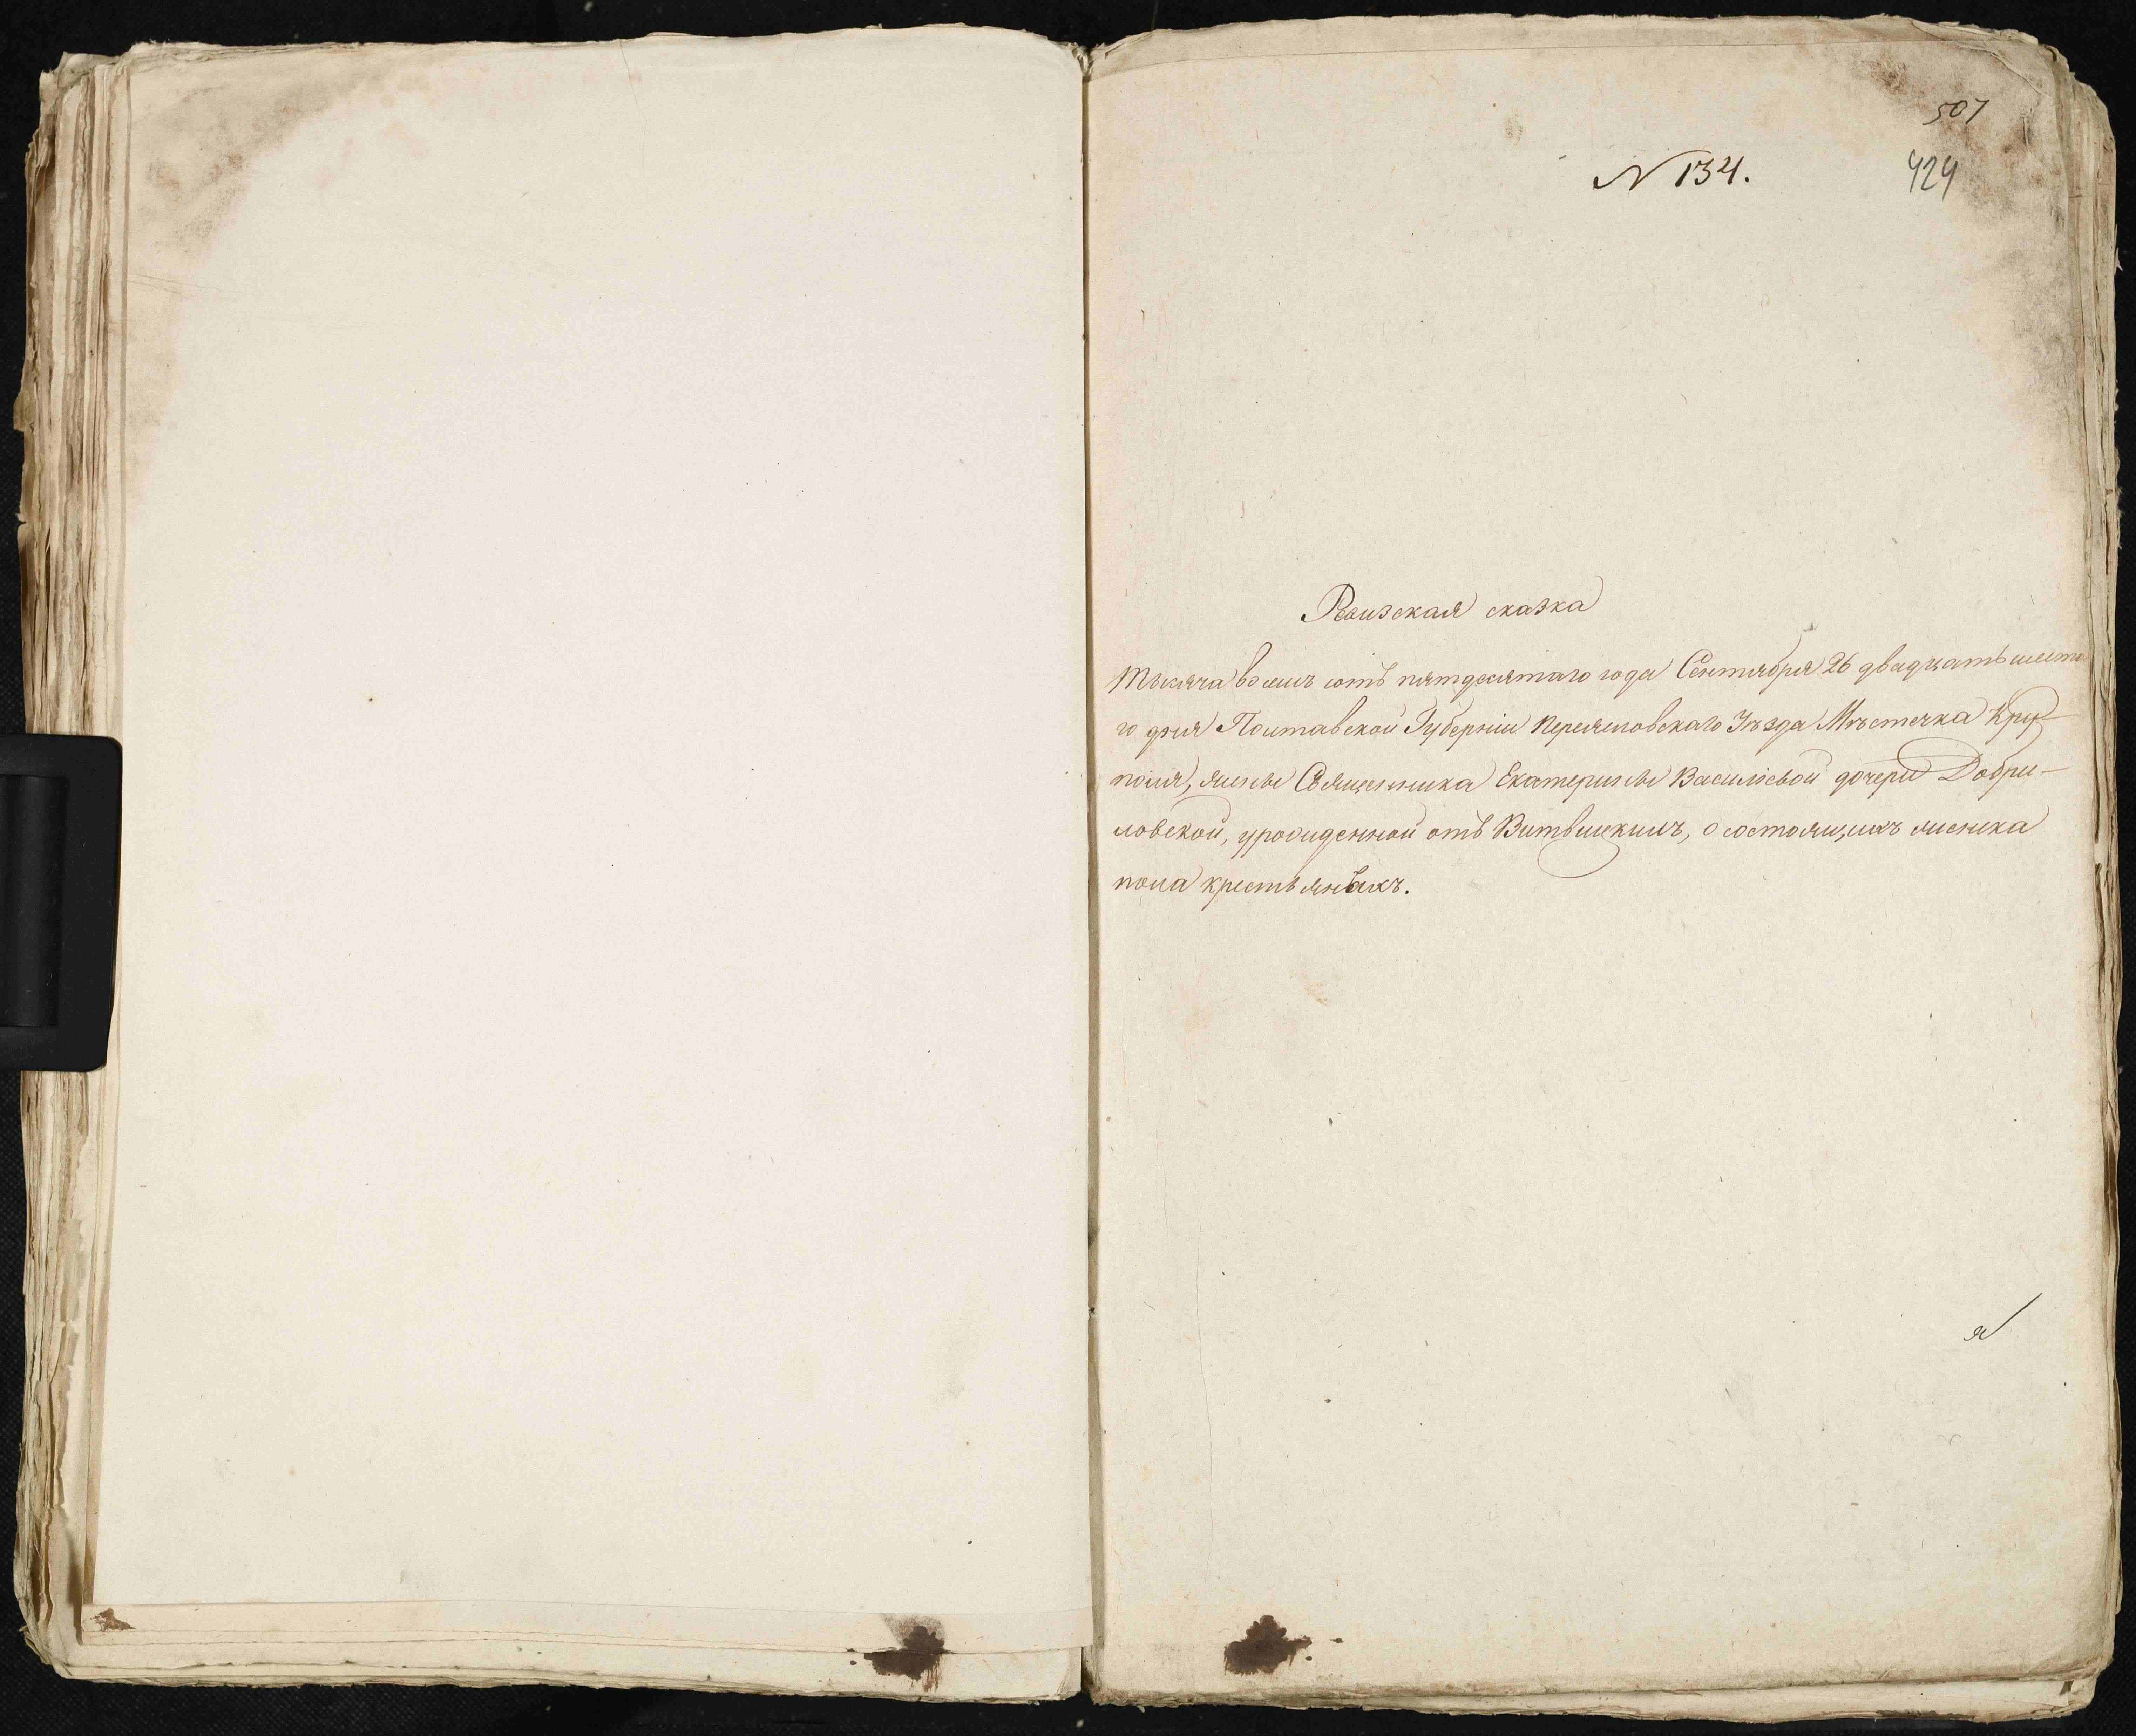 507
N 134.
424
Ревизская сказка
Тысяча восемъ сотъ пятдесятаго года Сентября 26 двадцать шеста
го дня Полтавской Губерніи Переясловскаго Уѣзда Мѣстечка Кру
поля, жены Священника Екатерины Василіевой дочери Добри-
ловской, урожденной отъ Витвицкихъ, о состоящихъ женска
пола крестьянъахъ.
я